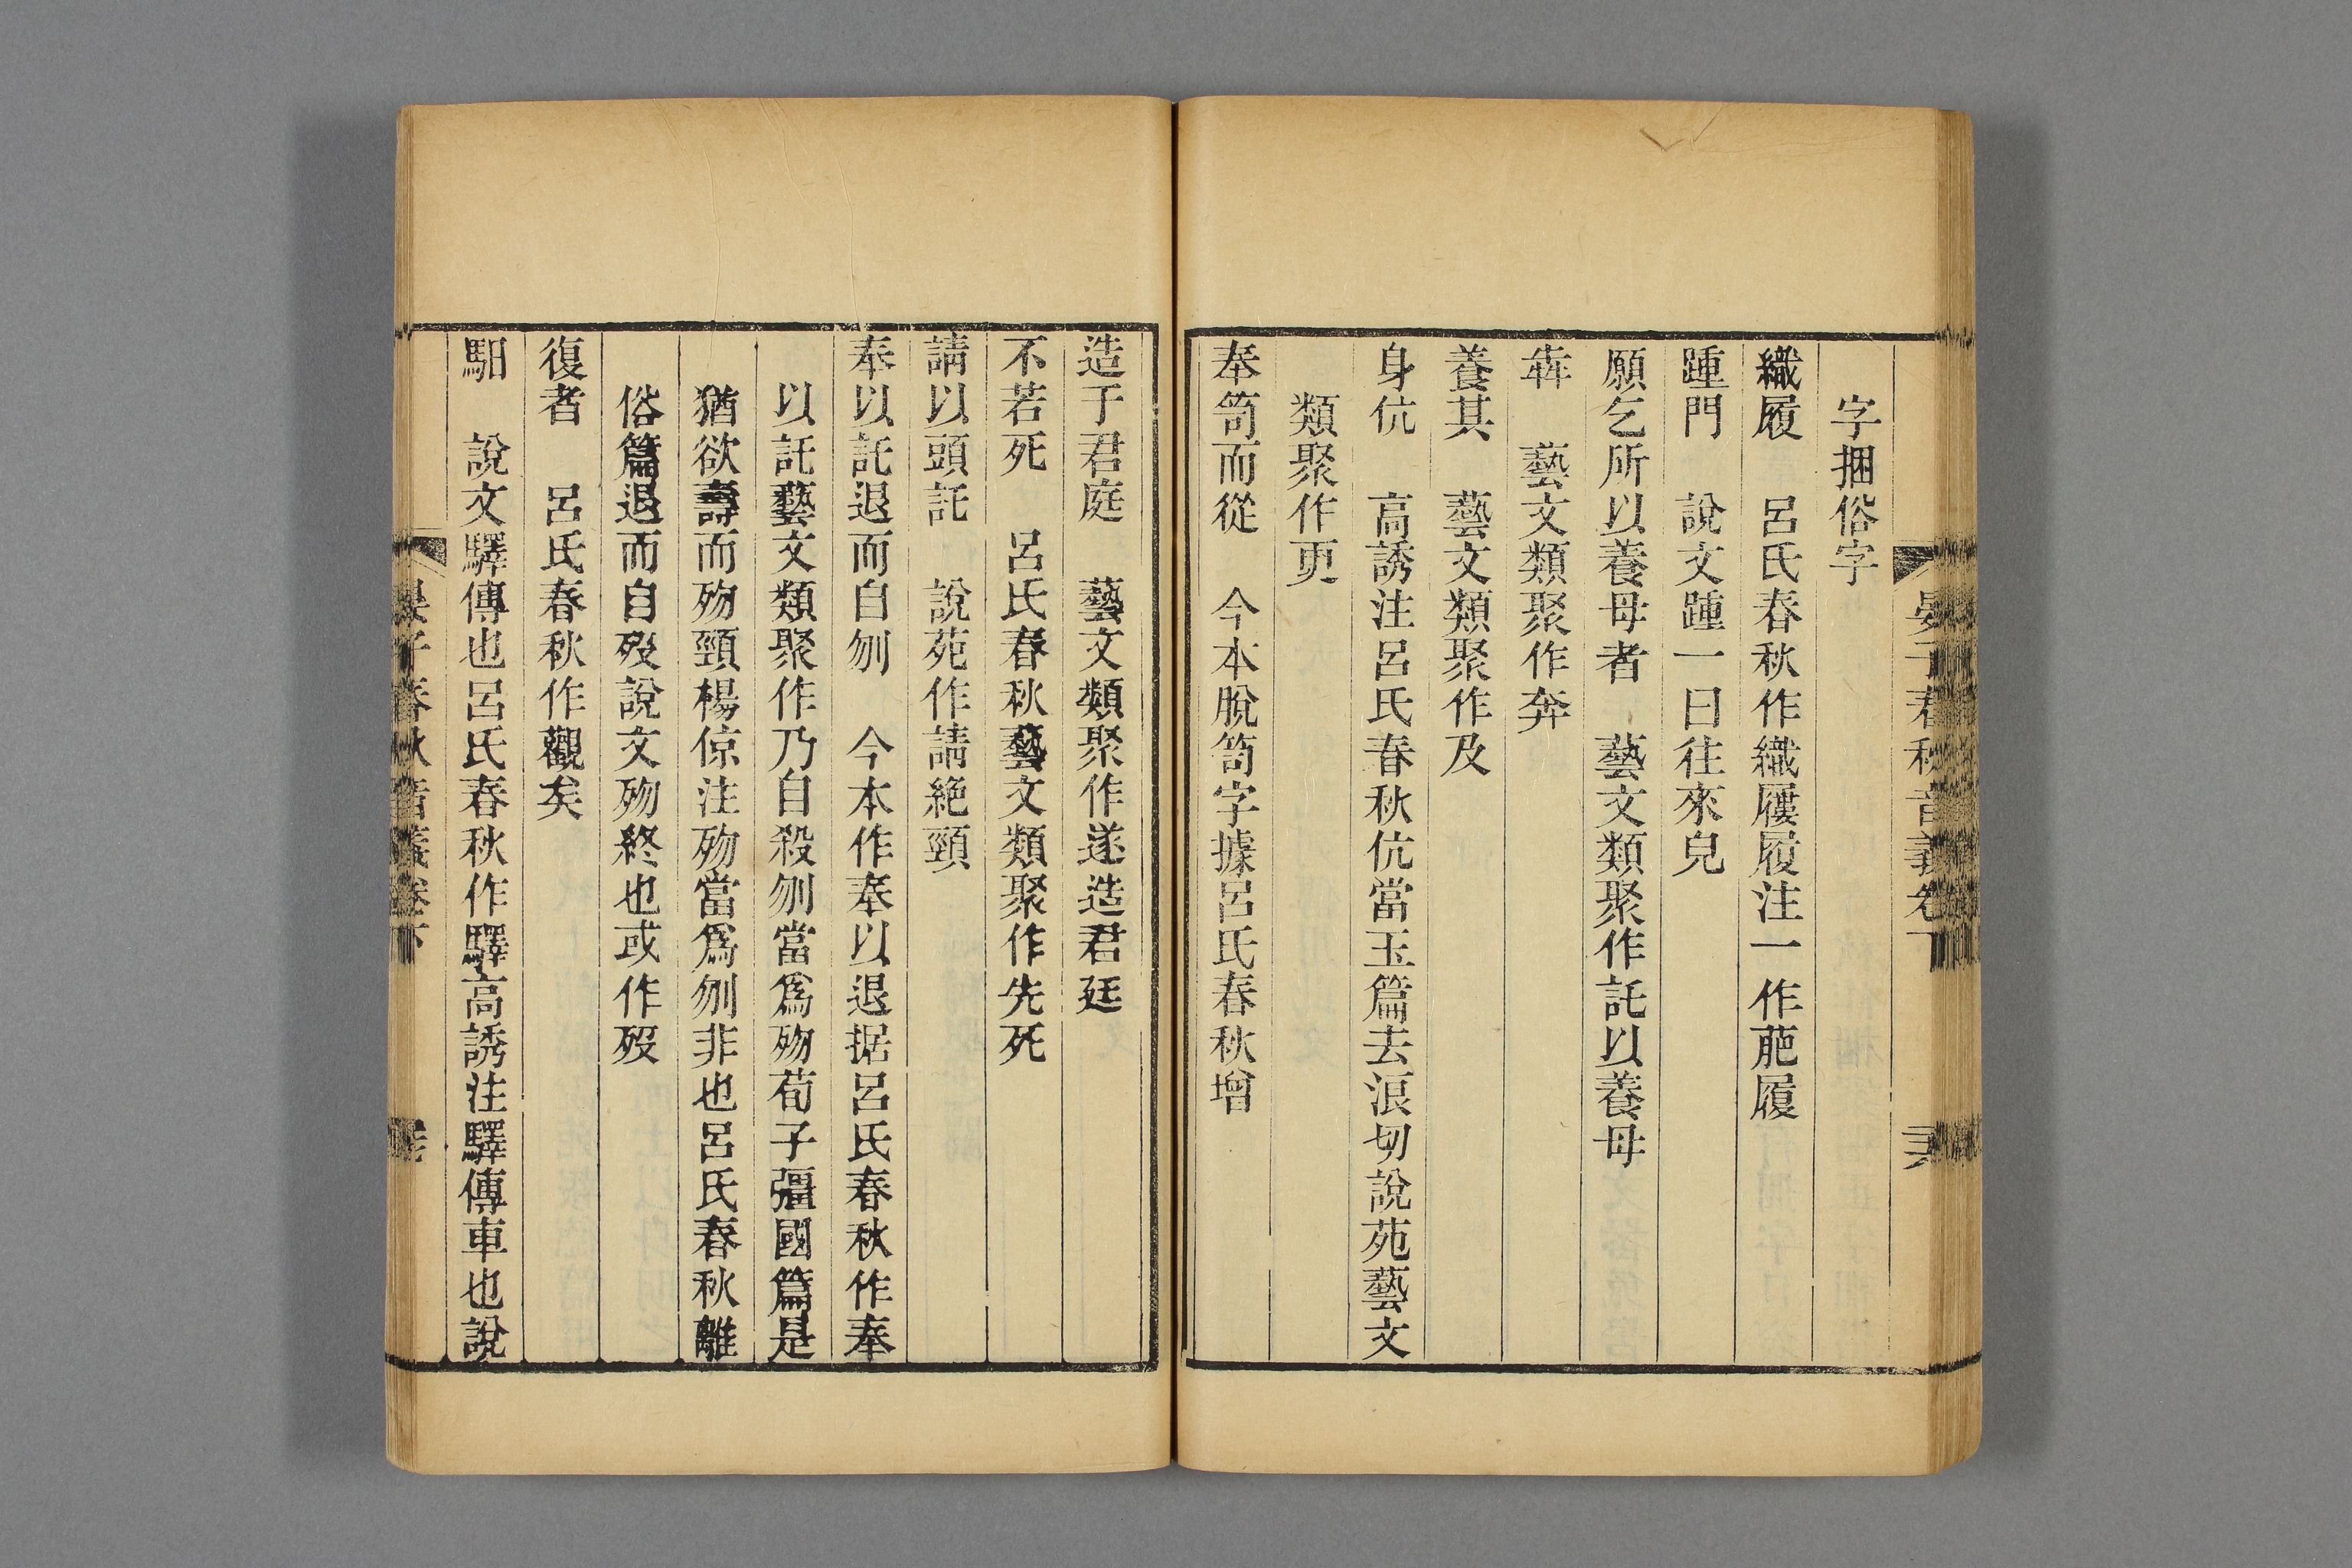 晏子春秋音義卷下
字捆俗字
織履　呂氏春秋作織屨履注一作葩履
踵門　說文踵一曰往來皃
願乞所以養母者　藝文類聚作託以養母
犇　藝文類聚作奔
養其　藝文類聚作及
身伉　高誘注呂氏春秋伉當玉篇去浪切說苑藝文
類聚作更
奉笥而從　今本脫笥字據呂氏春秋增
造于君庭　藝文類聚作遂造君廷
不若死　呂氏春秋藝文類聚作先死
請以頭託　說苑作請絕頸
奉以託退而自刎　今本作奉以退据呂氏春秋作奉
以託藝文類聚作乃自殺刎當爲歾荀子彊國篇是
猶欲壽而歾頸楊倞注歾當爲刎非也呂氏春秋離
俗篇退而自歿說文歾終也或作歿
復者　呂氏春秋作觀矣
馹　說文驛傳也呂氏春秋作驛高誘注驛傳車也說
晏子春秋音義卷下